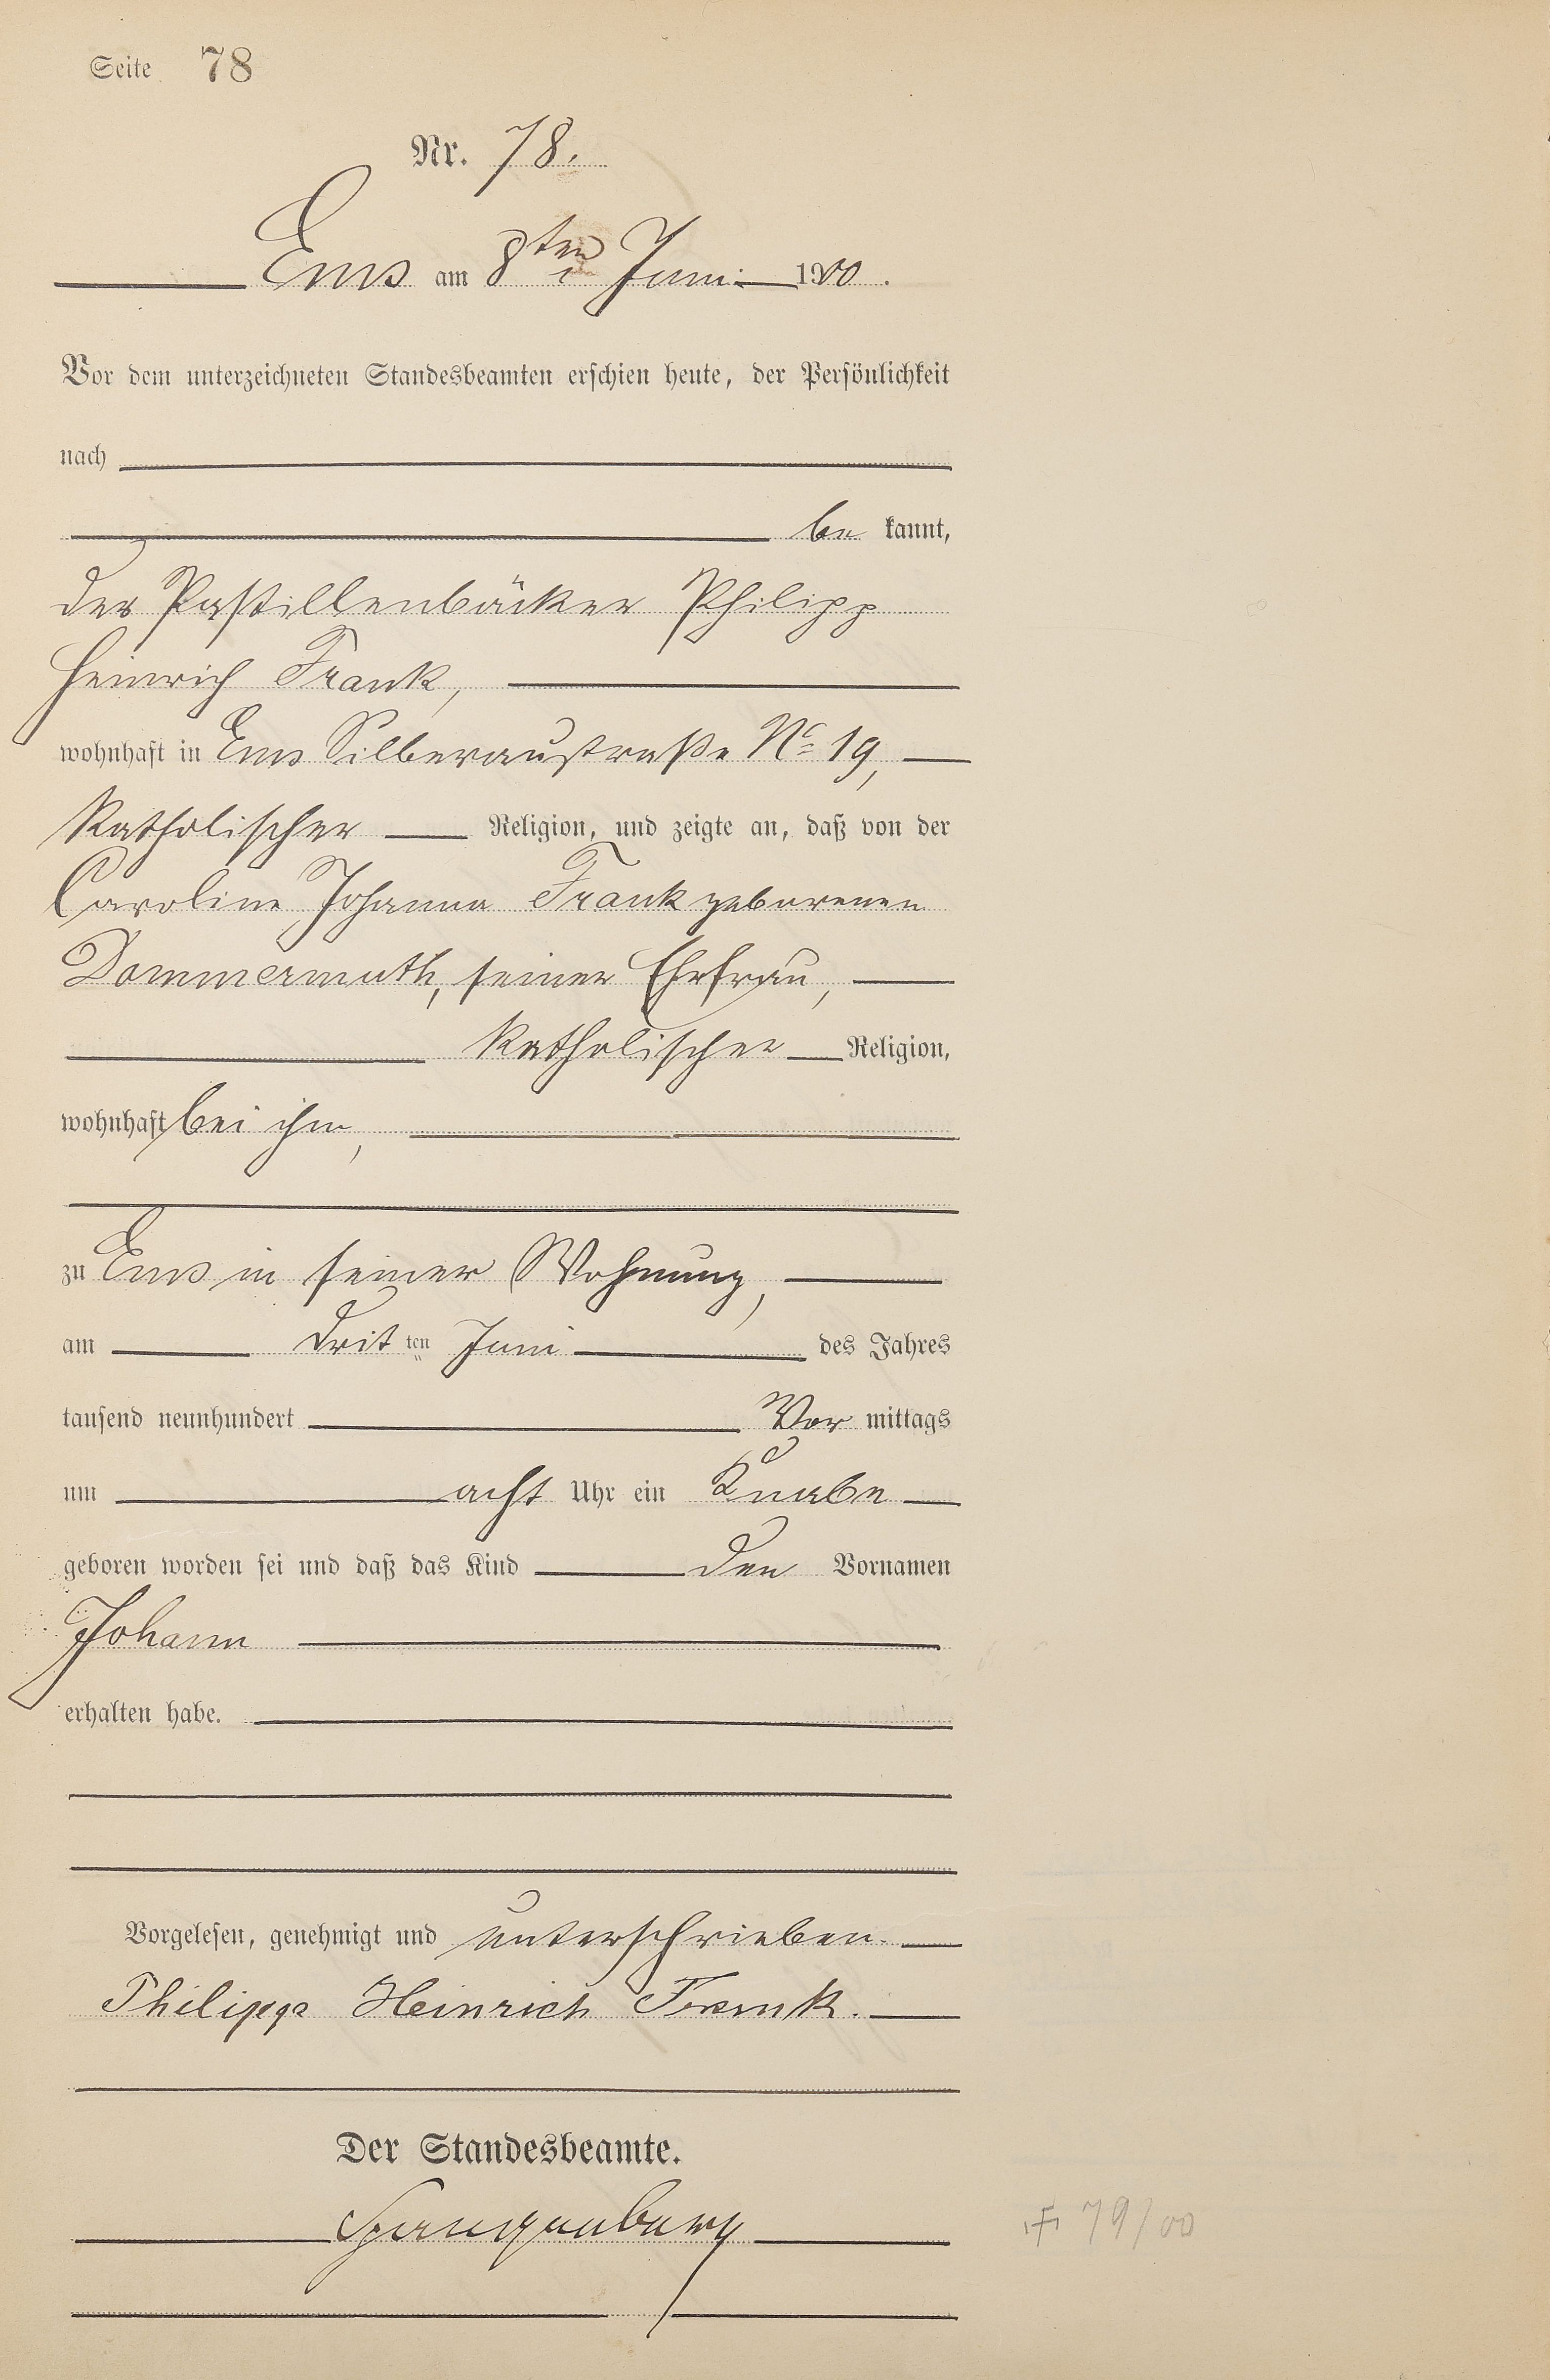 Seite 78
Nr. 78.
Ems am 8ten Juni 1900.
Vor dem unterzeichneten Standesbeamten erschien heute, der Persönlichkeit
nach
be kannt,
der Pastillenbäcker Philipp
Heinrich Frank,
wohnhaft in Ems Silberaustraße No 19,
katholischer Religion, und zeigte an, daß von der
Caroline Johanna Frank geborenen
Dommermuth, seiner Ehefrau,
katholischer Religion,
wohnhaft bei ihm,
zu Ems in seiner Wohnung,
am drit ten Juni des Jahres
tausend neunhundert Vor mittags
um acht Uhr ein Knabe
geboren worden sei und daß das Kind den Vornamen
Johann
erhalten habe.
Vorgelesen, genehmigt und unterschrieben.
Philipp Heinrich Frank.
Der Standesbeamte.
Spangenberg
79/00